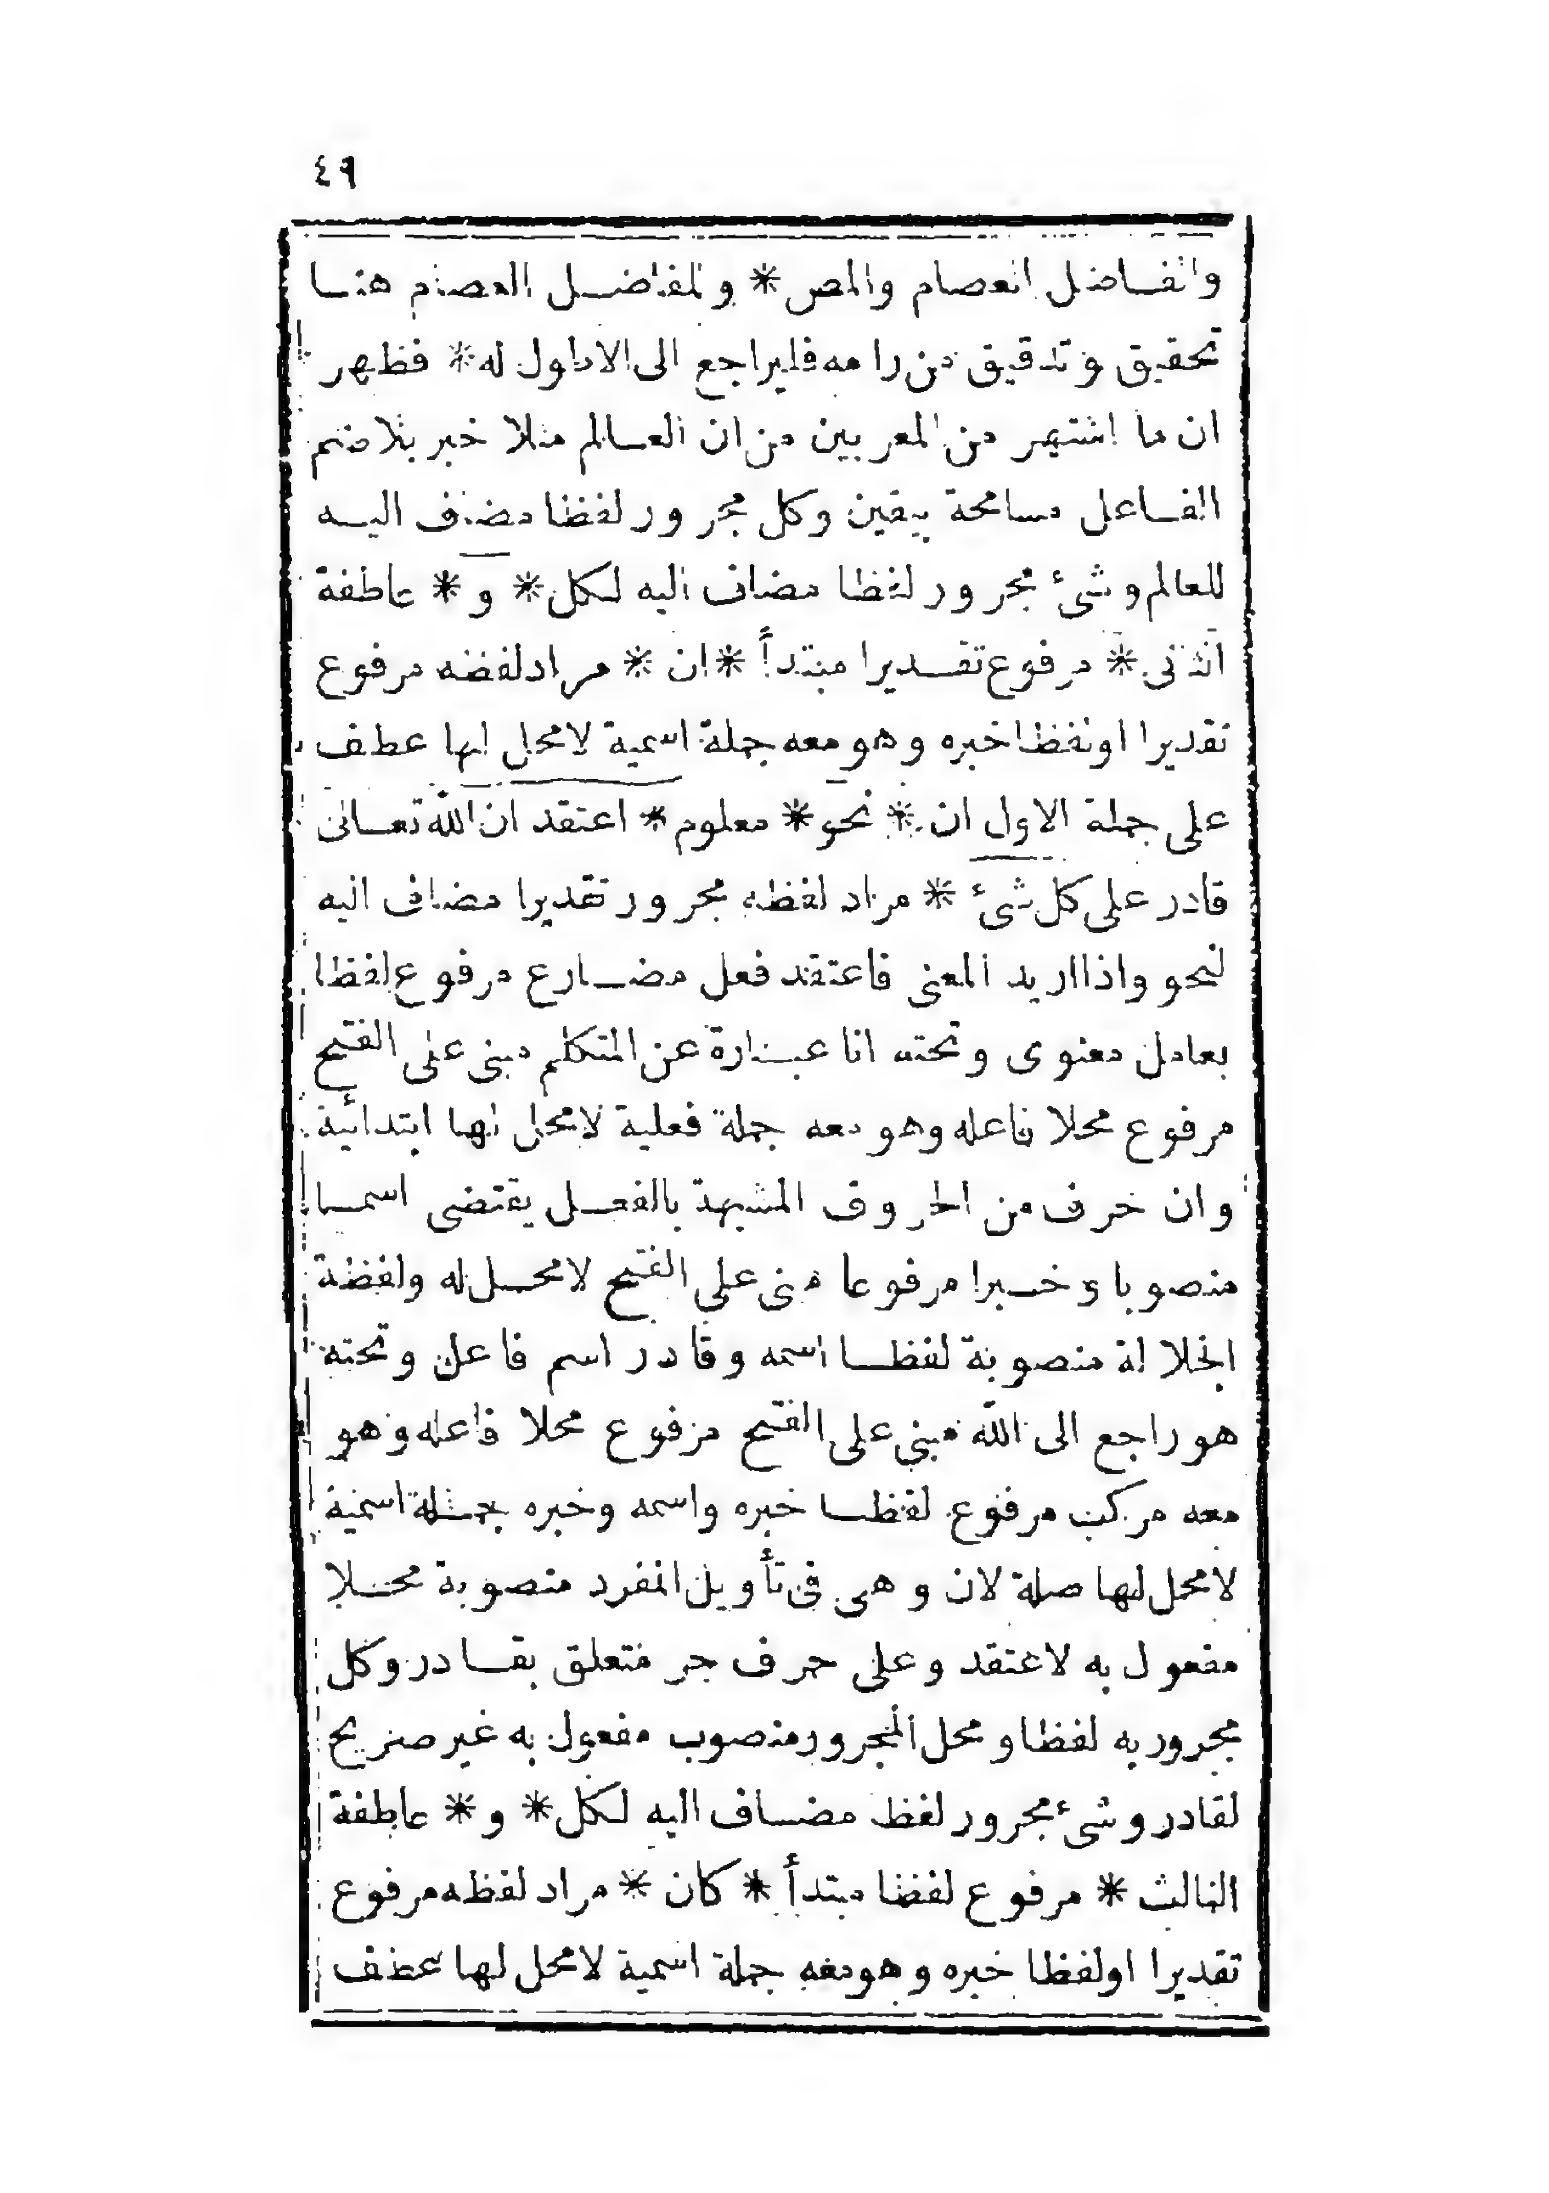 ٤٩
والفاضل العصام والمص * وللفاضل العصام هنا
تحقيق وتدقيق من رامه فليراجع الى الاطول له * فظهر
ان ما اشتهر من المعربين من ان العالم مثلا خبر بلا ضم
الفاعل مسامحة بيقين وكل مجرور لفظا مضاف اليه
للعالم وشئ مجرور لفظا مضاف اليه لكل * و * عاطفة
الثانى * مرفوع تقديرا مبتدأ * ان * مراد لفظه مرفوع
تقديرا اولفظا خبره وهو معه جملة اسمية لامحل لها عطف
على جملة الاول ان * نحو * معلوم * اعتقد ان الله تعالى
قادر على كل شئ * مراد لفظه مجرور تقديرا مضاف اليه
لنحو واذا اريد المعنى فاعتقد فعل مضارع مرفوع لفظا
بعامل معنوى وتحته انا عبارة عن المتكلم مبنى على الفتح
مرفوع محلا فاعله وهو معه جملة فعلية لامحل لها ابتدائية
وان حرف من الحروف المشبهة بالفعل يقتضى اسما
منصوبا وخبرا مرفوعا مبنى على الفتح لامحل له ولفظة
الجلالة منصوبة لفظا اسمه وقادر اسم فاعل وتحته
هو راجع الى الله مبنى على الفتح مرفوع محلا فاعله وهو
معه مركب مرفوع لفظا خبره واسمه وخبره جملة اسمية
لامحل لها صلة لان وهى فى تأويل المفرد منصوبة محلا
مفعول به لاعتقد وعلى حرف جر متعلق بقادر وكل
مجرور به لفظا ومحل المجرور منصوب مفعول به غير صريح
لقادر وشئ مجرور لفظ مضاف اليه لكل * و * عاطفة
الثالث * مرفوع لفظا مبتدأ * كان * مراد لفظه مرفوع
تقديرا اولفظا خبره وهو معه جملة اسمية لامحل لها عطف